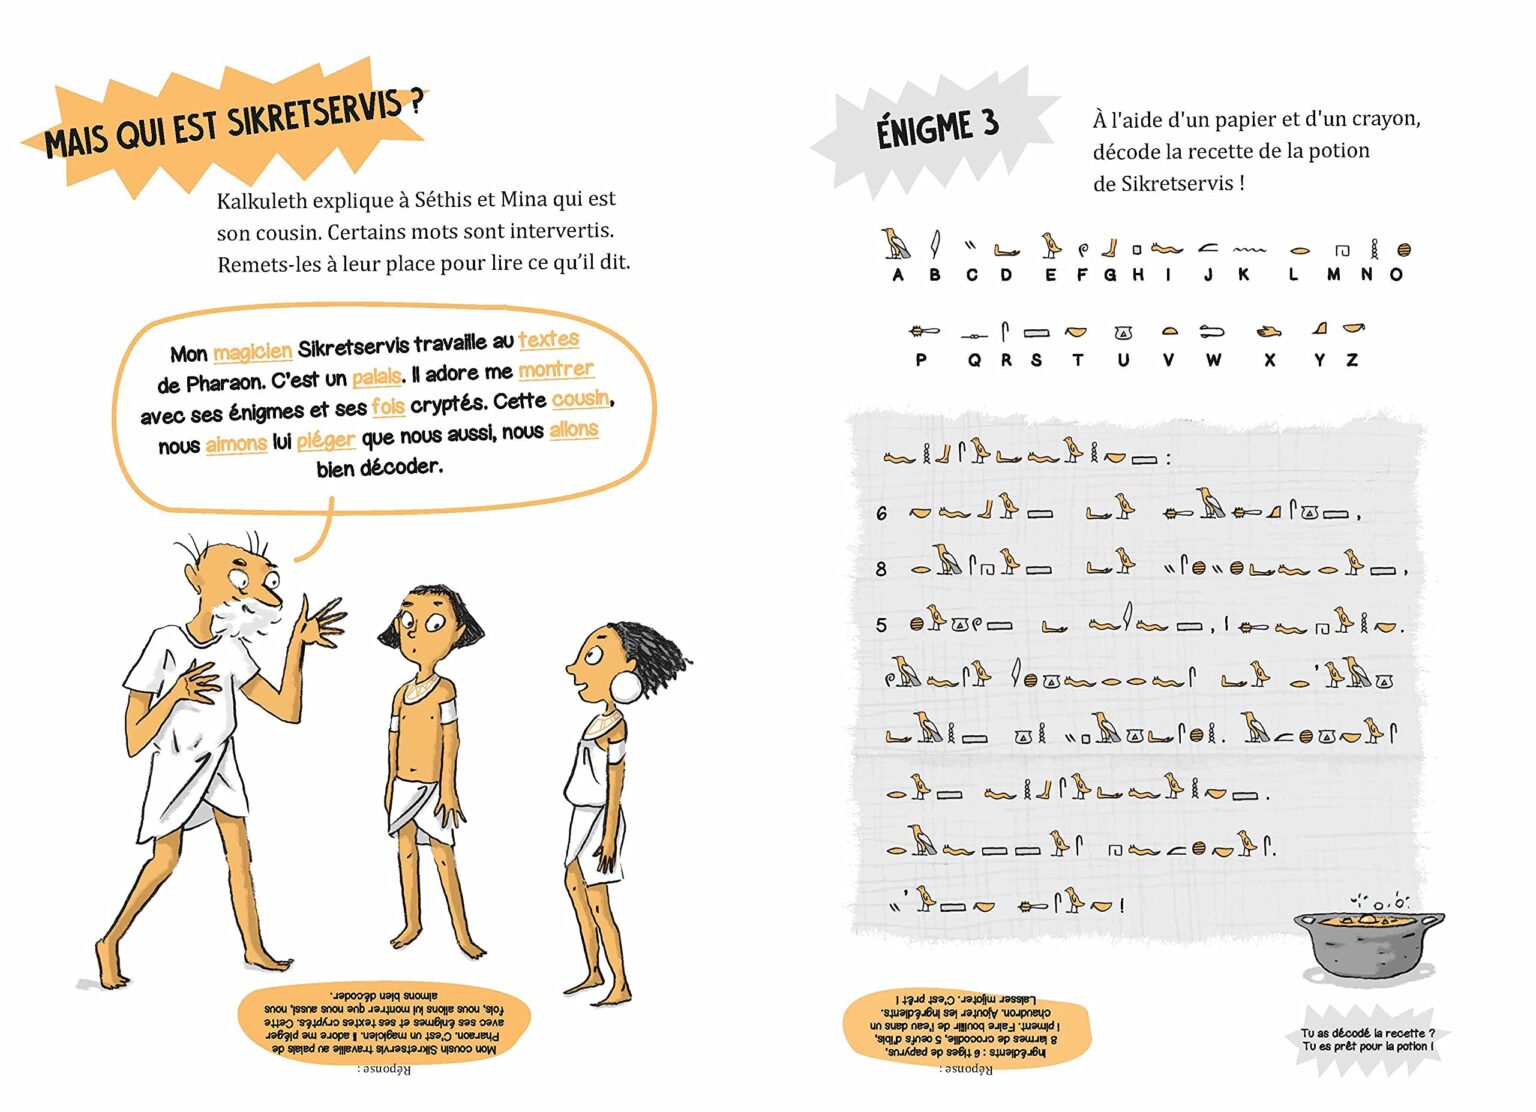 MAIS QUI EST SIKRETSERVIS ?
Kalkuleth explique à Séthis et Mina qui est
son cousin. Certains mots sont intervertis.
Remets-les à leur place pour lire ce qu'il dit.
Mon magicien Sikretservis travaille au textes
de Pharaon. C'est un palais. Il adore me montrer
avec ses énigmes et ses fois cryptés. Cette cousin,
nous aimons lui piéger que nous aussi, nous allons
bien décoder.
Réponse :
Mon cousin Sikretservis travaille au palais de
Pharaon. C'est un magicien. Il adore me piéger
avec ses énigmes et ses textes cryptés. Cette
fois, nous allons lui montrer que nous aussi, nous
aimons bien décoder.
ÉNIGME 3
À l'aide d'un papier et d'un crayon,
décode la recette de la potion
de Sikretservis !
A B C D E F G H I J K L M N O
P Q R S T U V W X Y Z
:
6 ,
8 ,
5 , 1 .
'
. 
.
.
' !
Réponse :
Ingrédients : 6 tiges de papyrus,
8 larmes de crocodile, 5 œufs d'ibis,
1 piment. Faire bouillir de l'eau dans un
chaudron. Ajouter les ingrédients.
Laisser mijoter. C'est prêt !
Tu as décodé la recette ?
Tu es prêt pour la potion !